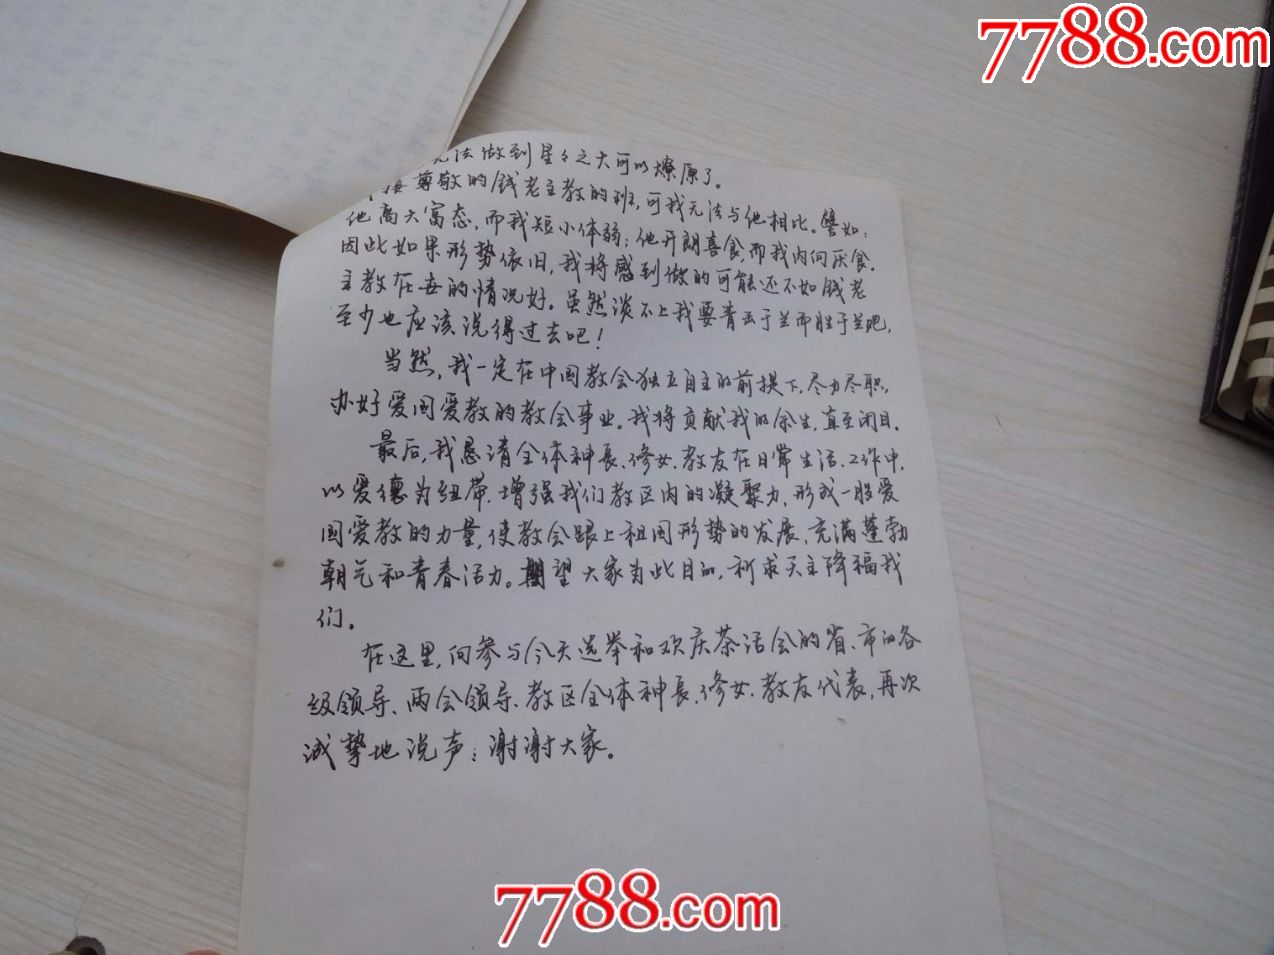 7788.com
无法做到星々之火可以燎原了。
接尊敬的钱老主教的班，可我无法与他相比。譬如：
他高大富态，而我短小体弱；他开朗喜食，而我内向厌食。
因此如果形势依旧，我将感到做的可能还不如钱老
主教在世的情况好。虽然谈不上我要青出于兰而胜于兰吧，
至少也应该说得过去吧！
当然，我一定在中国教会独立自主的前提下，尽力尽职，
办好爱国爱教的教会事业。我将贡献我的余生，直至闭目。
最后，我恳请全体神长、修女、教友在日常生活、工作中，
以爱德为纽带，增强我们教区内的凝聚力，形成一股爱
国爱教的力量，使教会跟上祖国形势的发展，充满蓬勃
朝气和青春活力。期望大家为此目的，祈求天主降福我
们。
在这里，向参与今天选举和欢庆茶话会的省、市的各
级领导、两会领导、教区全体神长、修女、教友代表，再次
诚挚地说声：谢谢大家。
7788.com